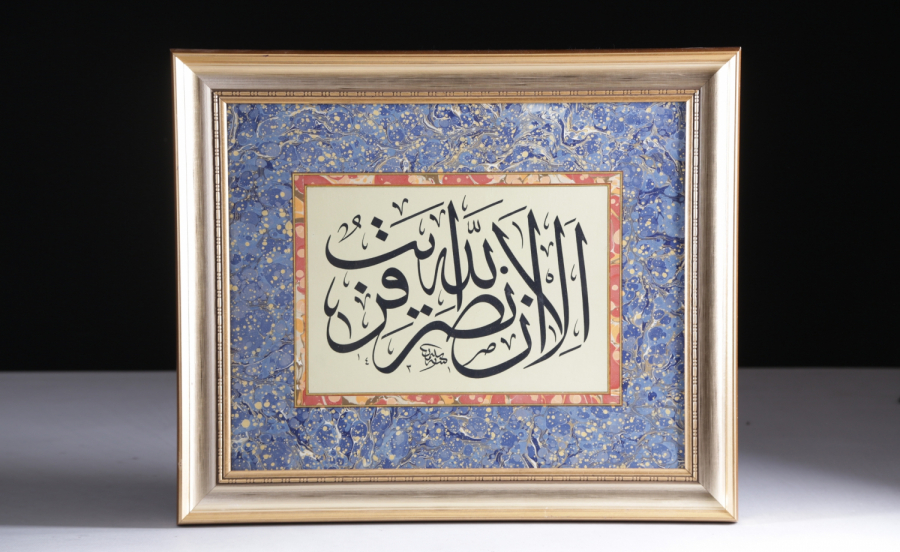 الا ان نصر الله قريب